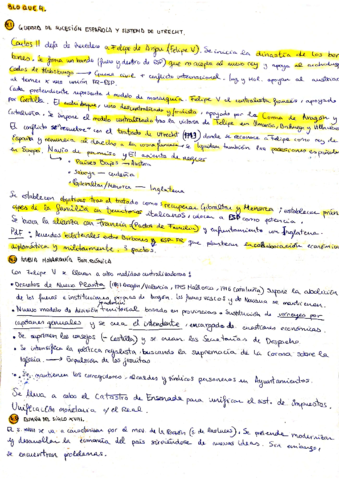 BLOQUE 4.
4.1 GUERRA DE SUCESIÓN ESPAÑOLA Y SISTEMA DE UTRECHT.
Carlos II deja de heredero a Felipe de Anjou (Felipe V). Se inicia la dinastía de los bor
bones. Se forma un bando (fuera y dentro de ESP) que no acepta al nuevo rey y apoya al archiduque
Carlos de Habsburgo → Guerra civil + conflicto internacional. Ing y Hol. apoyan al austriaco
al temer a una unión FR-ESP.
Cada pretendiente representa a modelo de monarquía. Felipe V el centralista francés, apoyado
por Castilla. El archiduque, uno descentralizado y foralista, apoyado por la Corona de Aragón y
Cataluña. Se impone el modelo centralizado tras la victoria de Felipe en Almansa, Brihuega y Villaviciosa
El conflicto se "resuelve" con el tratado de Utrecht (1713) donde se reconoce a Felipe como rey de
España y renuncia al derecho a la corona francesa. Se liquidan también las posesiones españolas
en Europa. Navío de permiso y el asiento de negros
• Países Bajos → Austria
• Saboya → Cerdeña
• Gibraltar/Menorca → Inglaterra
Se establecen objetivos tras el tratado como: recuperar Gibraltar y Menorca; establecer prín
cipes de la familia en territorios italianos; ubicar a ESP como potencia.
Se busca la alianza con Francia (Pactos de Familia) y enfrentamiento con Inglaterra.
PdF: Acuerdos bilaterales entre Borbones ESP-FR que plantean la colaboración económica
diplomática y militarmente. 3 pactos.
4.2 NUEVA MONARQUÍA BORBÓNICA
Con Felipe V se llevan a cabo medidas centralizadoras:
• Decretos de Nueva Planta (1707 Aragón/Valencia, 1715 Mallorca, 1716 Cataluña) supuso la abolición
de los fueros e instituciones propias de Aragón. Los fueros vascos y de Navarra se mantienen.
• Nuevo modelo de admón territorial basado en provincias → Sustitución de virreyes por
capitanes generales y se crea el intendente: encargado de cuestiones económicas.
• Se suprimen los consejos (- Castilla) y se crean las Secretarías de Despacho.
• Se intensifica la política regalista buscando la supremacía de la Corona sobre la
Iglesia → Expulsión de los jesuitas
• Se mantienen los corregidores, alcaldes y síndicos personeros en Ayuntamientos.
Se lleva a cabo el Catastro de Ensenada para unificar el sist. de impuestos.
Unificación monetaria y el Real.
4.3 ESPAÑA DEL SIGLO XVIII.
El s. XVIII se va a caracterizar por el mov. de la Ilustración (s. de las luces). Se pretende modernizar
y desarrollar la economía del país sirviéndose de nuevas ideas. Sin embargo,
se encuentran problemas.